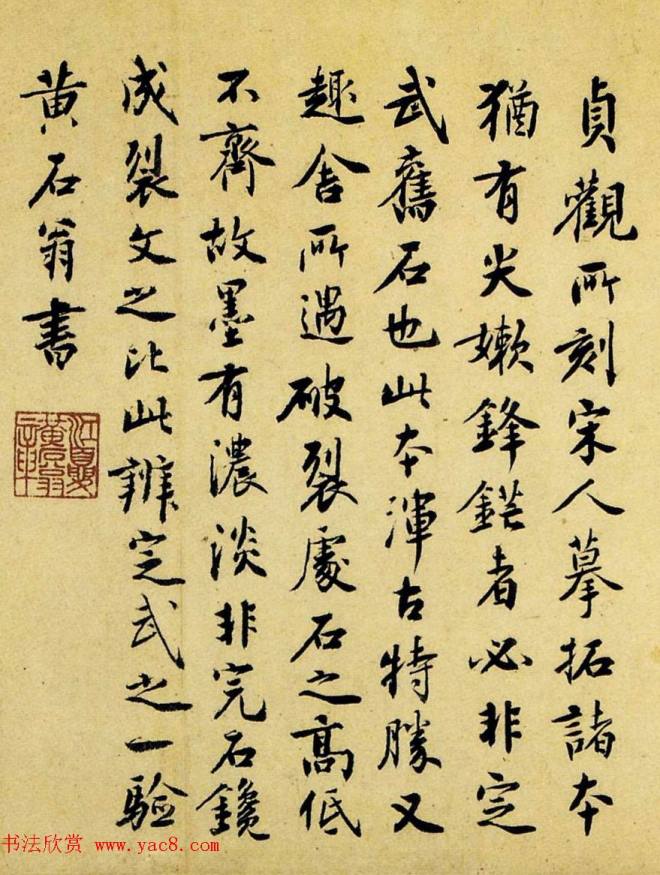 貞觀所刻宋人摹拓諸本
猶有尖嫩鋒鋩者必非定
武舊石也此本渾古特勝又
趣舍所遇破裂處石之高低
不齊故墨有濃淡非完石鑱
成裂文之比此辨定武之一驗
黄石翁書
书法欣赏 www.yac8.com